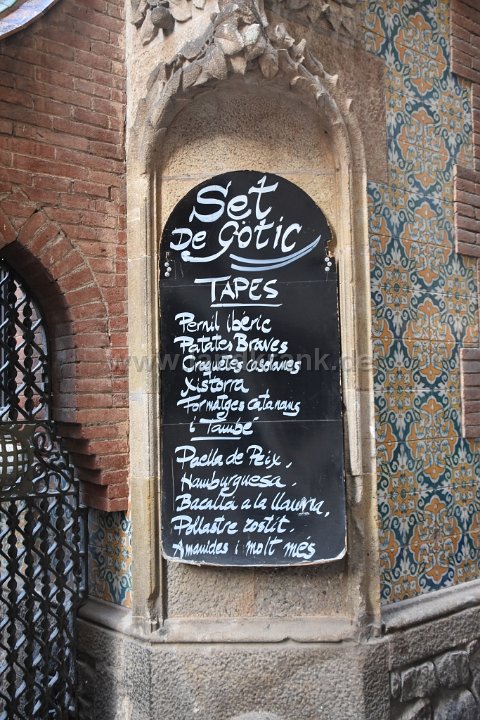 Set
De gòtic
TAPES
Pernil ibèric
Patates Braves
Croquetes casolanes
Xistorra
Formatges catalans
i També
Paella de Peix,
Hamburguesa.
Bacallà a la llauna,
Pollastre rostit.
Amanides i molt més